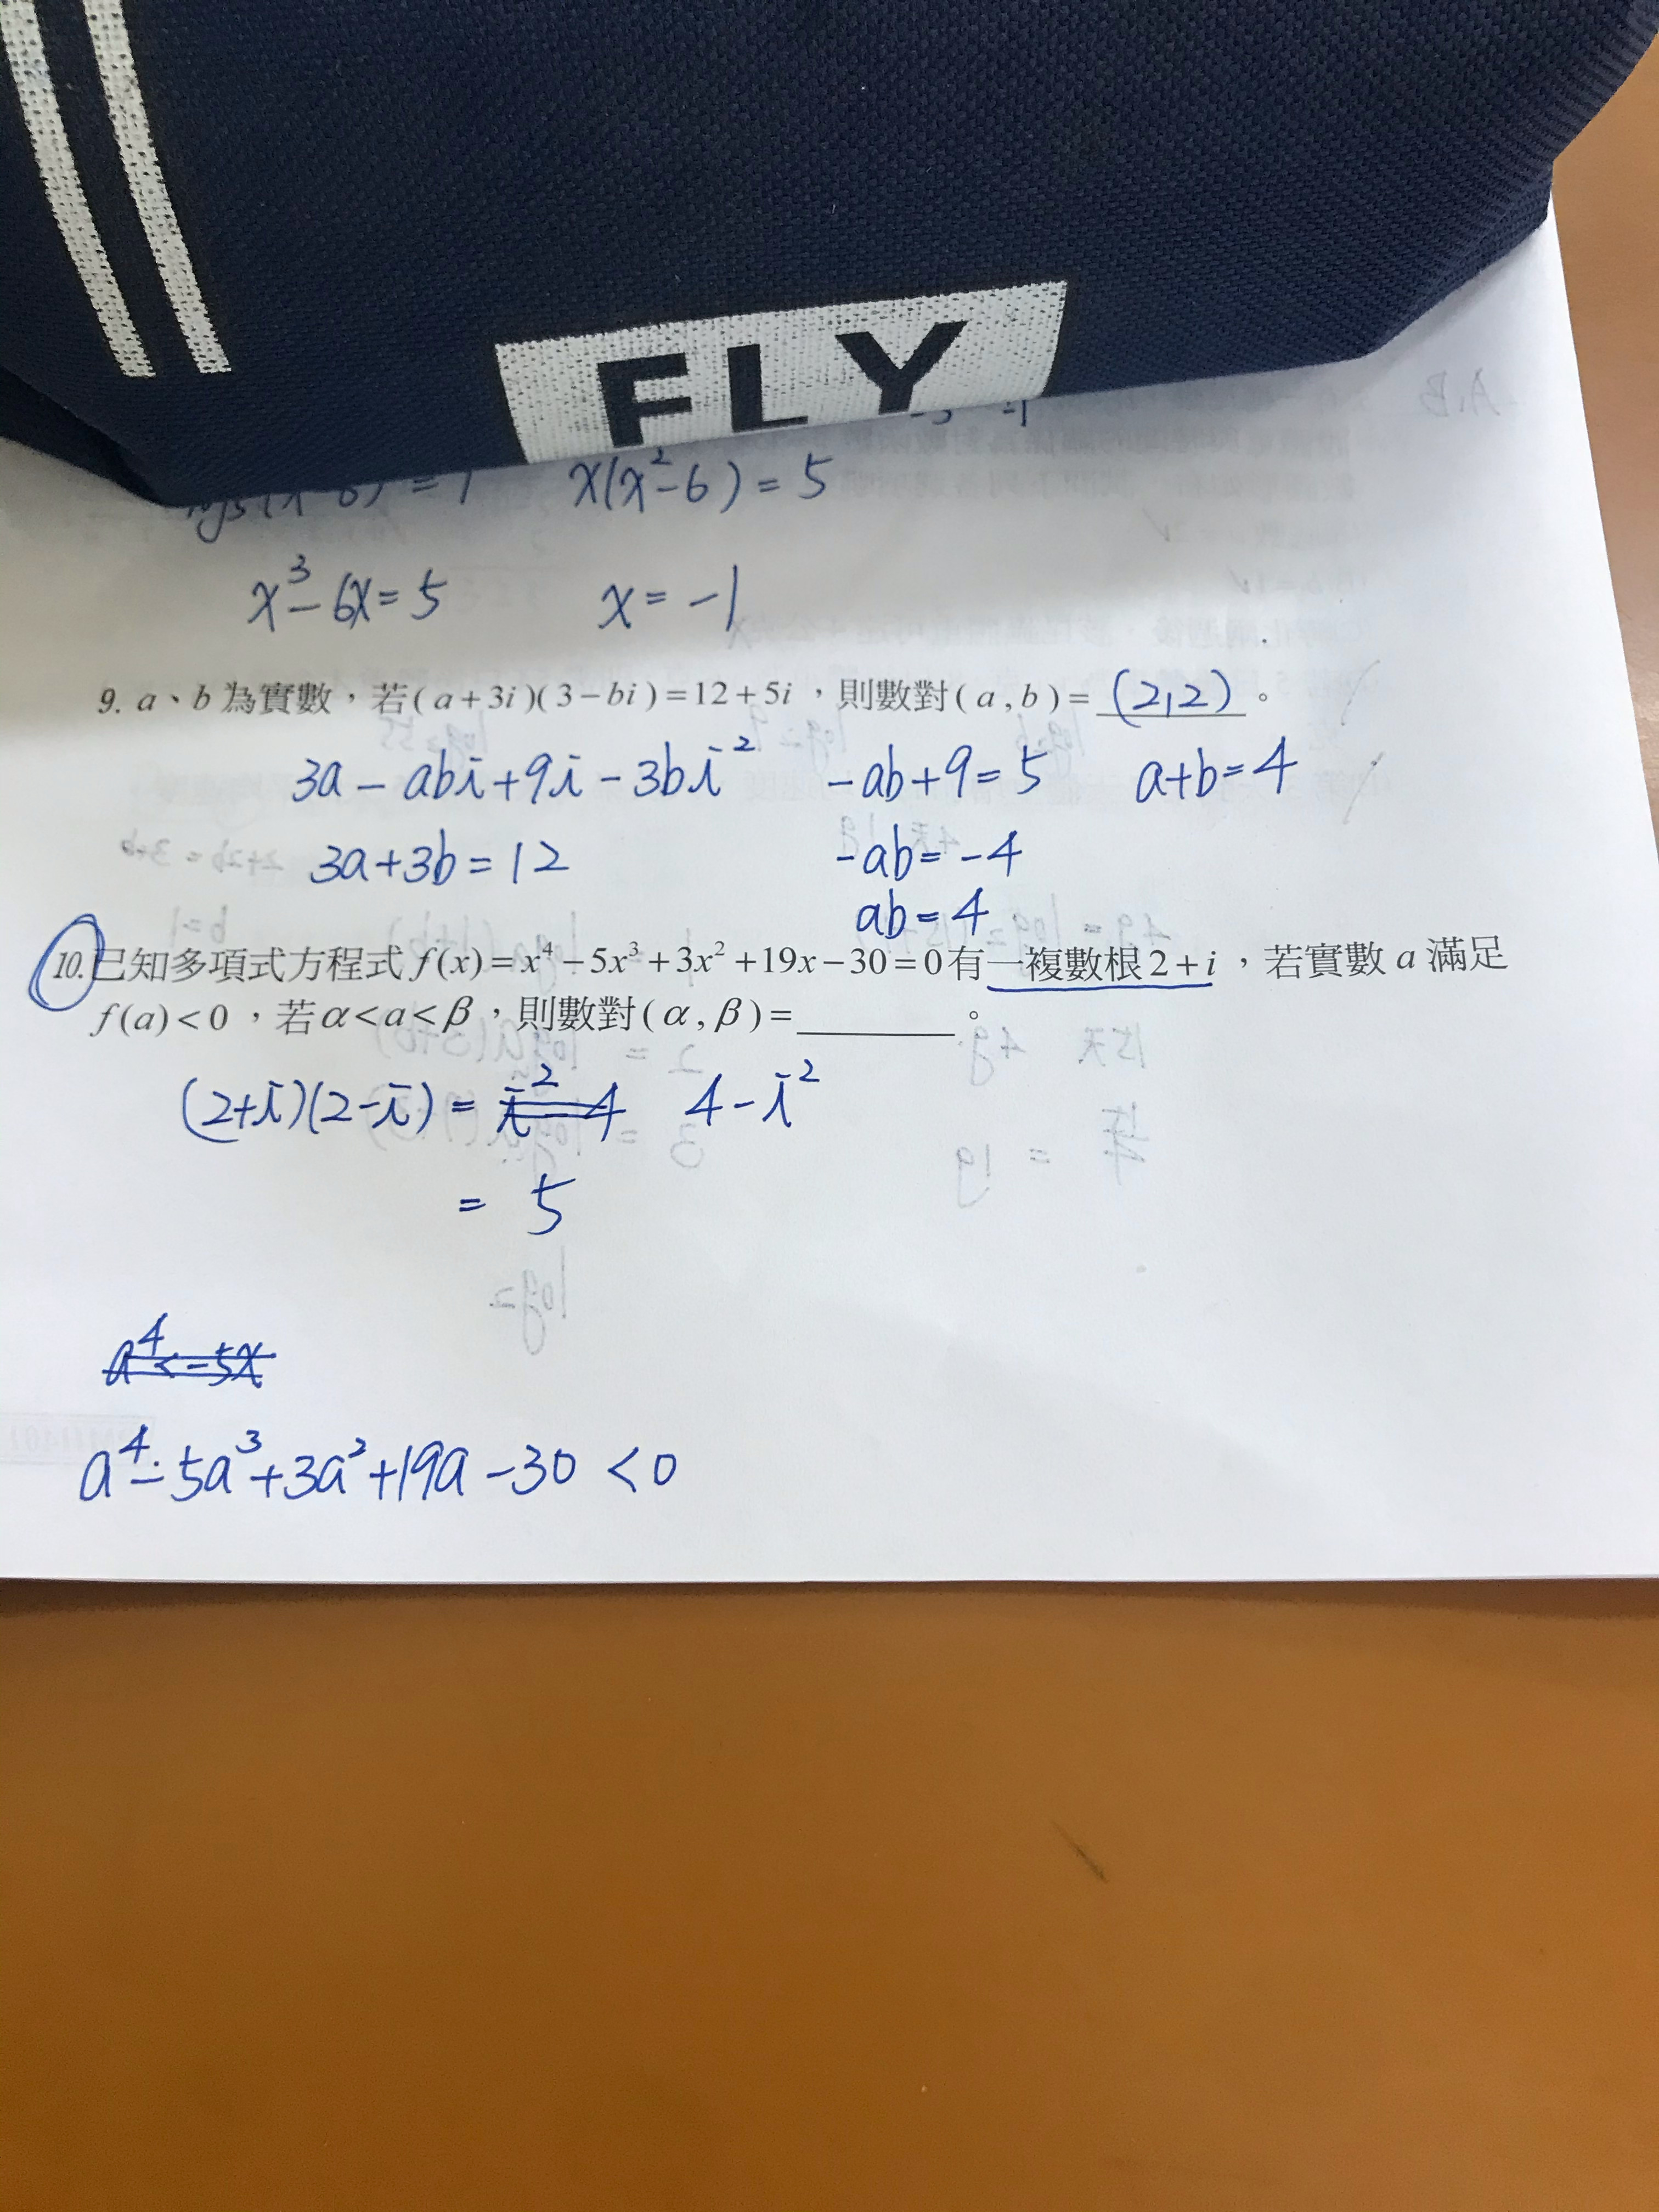 FLY
= 1 x(x²-6) = 5
x³-6x=5 x=-1
9. a、b 為實數，若(a+3i)(3-bi)=12+5i，則數對(a,b)=(2,2)。
3a-abi+9i-3bi² -ab+9=5 a+b=4
3a+3b=12 -ab=-4
ab=4
10.已知多項式方程式 f(x)=x⁴-5x³+3x²+19x-30=0有一複數根2+i，若實數 a 滿足
f(a)<0，若α<a<β，則數對(α,β)=________。
(2+i)(2-i) = i²-4 4-i²
= 5
a⁴<-5x
a⁴-5a³+3a²+19a-30<0